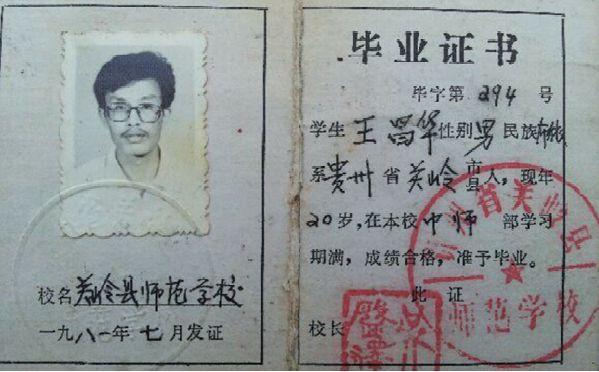 校名关岭县师范学校
一九八一年七月发证
毕业证书
毕字第294号
学生王昌华性别男民族布依
系贵州省关岭市县人,现年
20岁,在本校中师部学习
期满,成绩合格,准予毕业。
此证
校长
省关岭县
师范学校